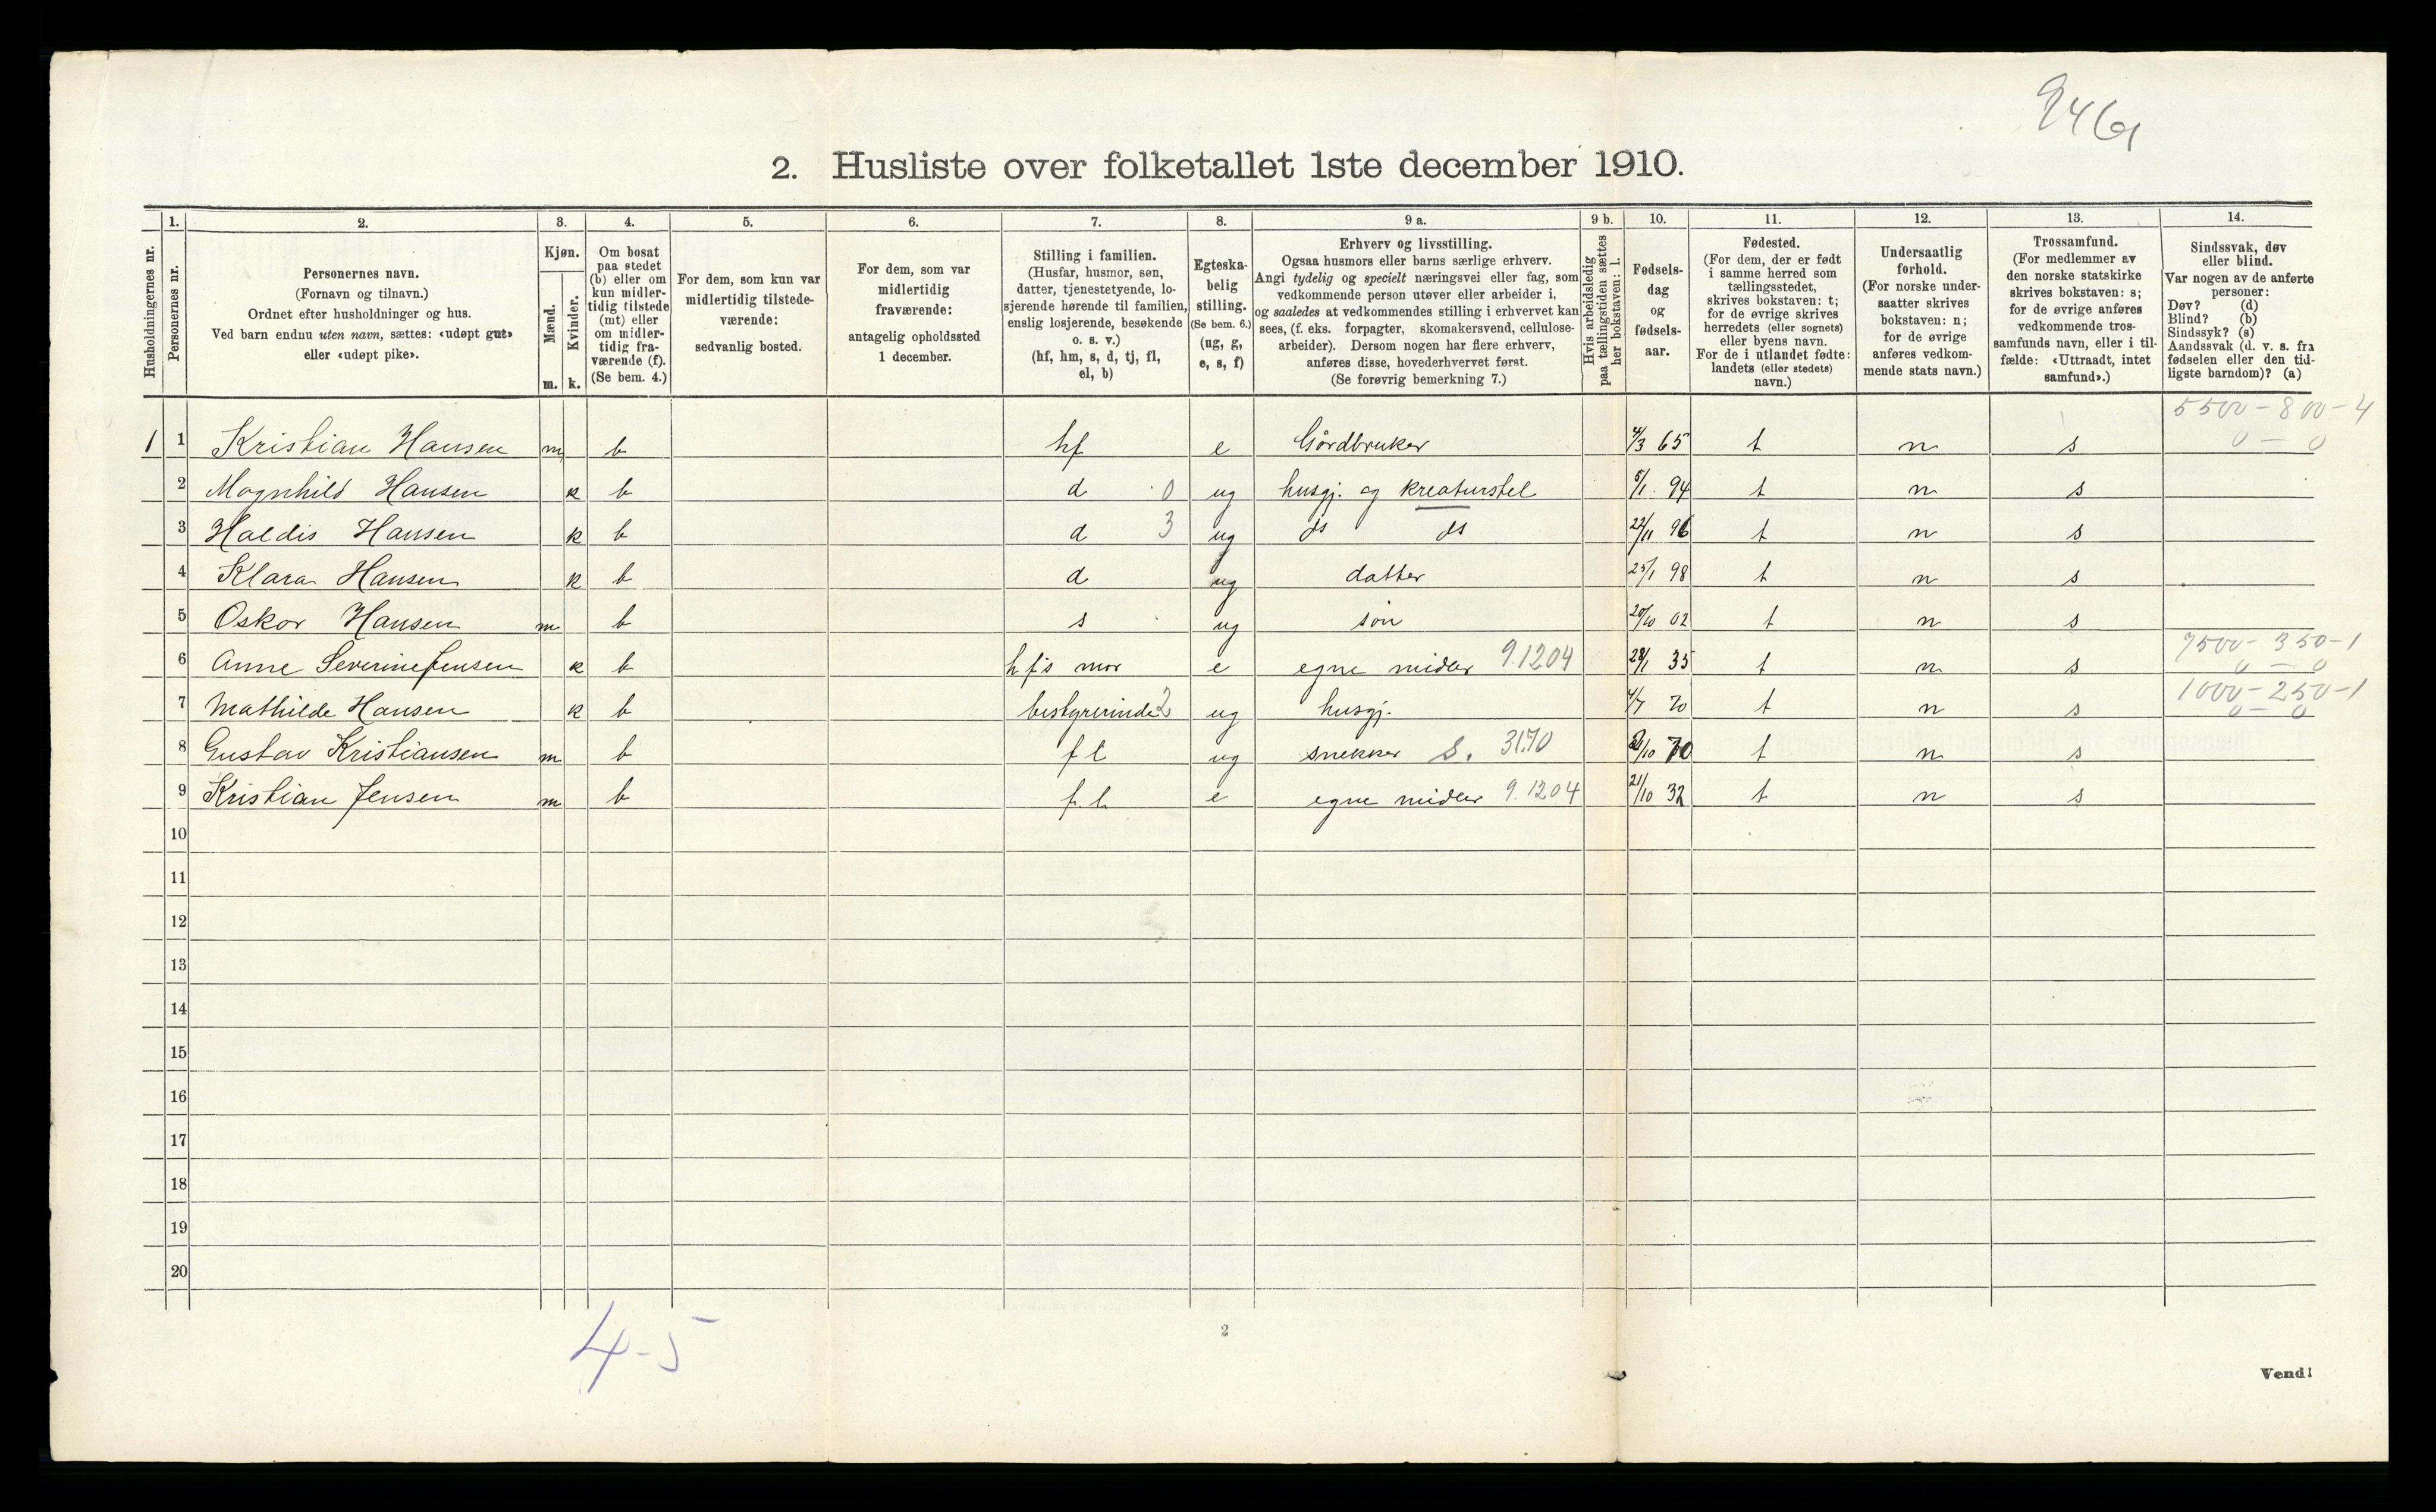 9461
2. Husliste over folketallet 1ste december 1910.
Husholdningernes nr.
1.
Personernes nr.
2.
Personernes navn.
(Fornavn og tilnavn.)
Ordnet efter husholdninger og hus.
Ved barn endnu uten navn, sættes: «udøpt gut»
eller «udøpt pike».
3.
Kjøn.
Mænd.
Kvinder.
m. k.
4.
Om bosat
paa stedet
(b) eller om
kun midler-
tidig tilstede
(mt) eller
om midler-
tidig fra-
værende (f).
(Se bem. 4.)
5.
For dem, som kun var
midlertidig tilstede-
værende:
sedvanlig bosted.
6.
For dem, som var
midlertidig
fraværende:
antagelig opholdssted
1 december.
7.
Stilling i familien.
(Husfar, husmor, søn,
datter, tjenestetyende, lo-
sjerende hørende til familien,
enslig losjerende, besøkende
o. s. v.)
(hf, hm, s, d, tj, fl,
el, b)
8.
Egteska-
belig
stilling.
(Se bem. 6.)
(ug, g,
e, s, f)
9 a.
Erhverv og livsstilling.
Ogsaa husmors eller barns særlige erhverv.
Angi tydelig og specielt næringsvei eller fag, som
vedkommende person utøver eller arbeider i,
og saaledes at vedkommendes stilling i erhvervet kan
sees, (f. eks. forpagter, skomakersvend, cellulose-
arbeider). Dersom nogen har flere erhverv,
anføres disse, hovederhvervet først.
(Se forøvrig bemerkning 7.)
9 b.
Hvis arbeidsledig
paa tællingstiden sættes
her bokstaven: l.
10.
Fødsels-
dag
og
fødsels-
aar.
11.
Fødested.
(For dem, der er født
i samme herred som
tællingsstedet,
skrives bokstaven: t;
for de øvrige skrives
herredets (eller sognets)
eller byens navn.
For de i utlandet fødte:
landets (eller stedets)
navn.)
12.
Undersaatlig
forhold.
(For norske under-
saatter skrives
bokstaven: n;
for de øvrige
anføres vedkom-
mende stats navn.)
13.
Trossamfund.
(For medlemmer av
den norske statskirke
skrives bokstaven: s;
for de øvrige anføres
vedkommende tros-
samfunds navn, eller i til-
fælde: «Uttraadt, intet
samfund».)
14.
Sindssvak, døv
eller blind.
Var nogen av de anførte
personer:
Døv? (d)
Blind? (b)
Sindssyk? (s)
Aandssvak (d. v. s. fra
fødselen eller den tid-
ligste barndom)? (a)
5500-800-4
1 1 Kristian Hansen m b hf e Gårdbruker 4/3 65 t n s 0-0
2 Magnhild Hansen k b d 0 ug husgj. og kreaturstel 5/1 94 t n s
3 Haldis Hansen k b d 3 ug ds ds 22/11 96 t n s
4 Klara Hansen k b d ug datter 25/1 98 t n s
5 Oskar Hansen m b s ug søn 20/10 02 t n s
7500-350-1
6 Anne Severine Jensen k b hfs mor e egne midler 9.1204 28/1 35 t n s 0-0
1000-250-1
7 Mathilde Hansen k b bestyrerinde 2 ug husgj. 4/7 70 t n s 0-0
8 Gustav Kristiansen m b fl ug snekker S. 31.70 /10 70 t n s
9 Kristian Jensen m b fl e egne midler 9.1204 21/10 32 t n s
10
11
12
13
14
15
16
17
18
19
20
4-5
2
Vend!